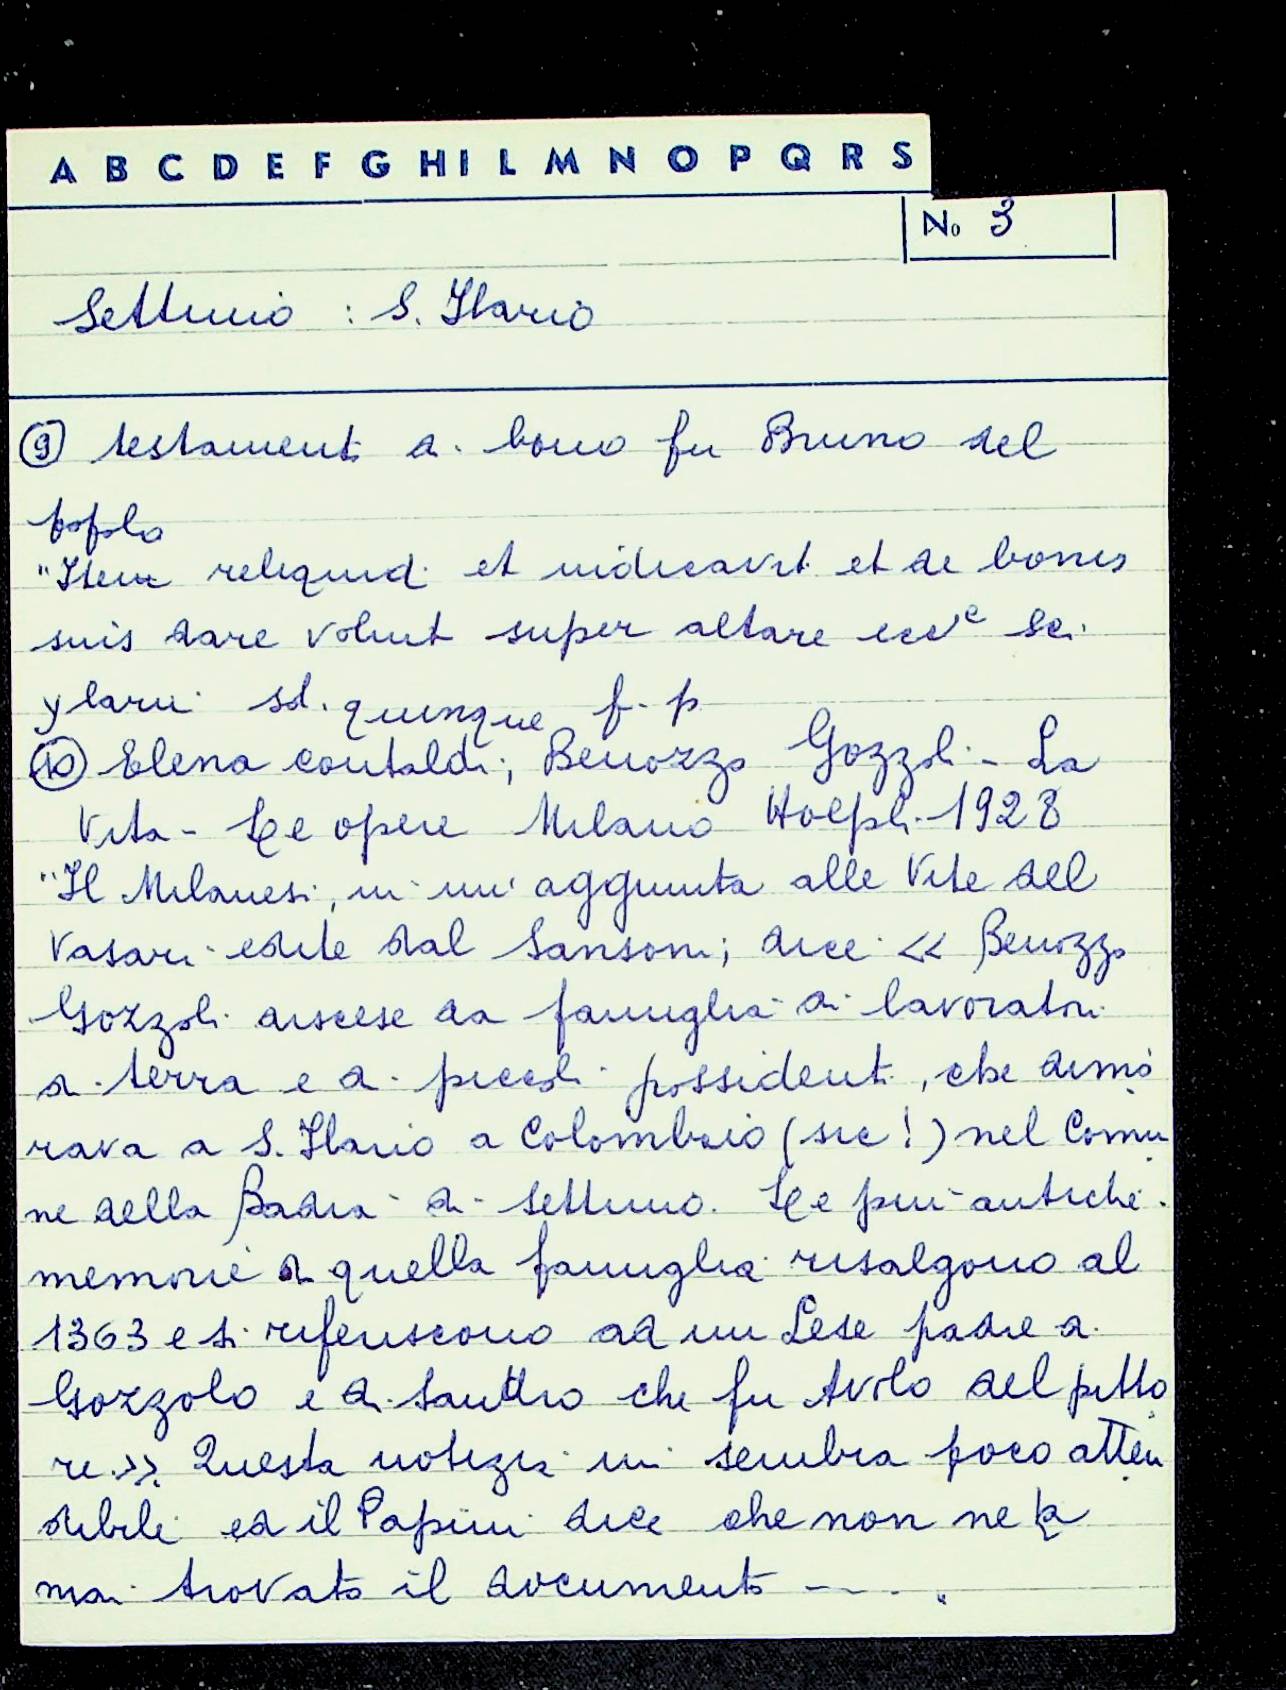 A B C D E F G H I L M N O P Q R S
No 3
Settimo : S. Ilario
⑨ testamento di bono fu Bruno del
popolo
"Item reliquid et iudicavit et de bonis
suis dare voluit super altare ecc^e Sci
ylarii sd. quinque f. p
⑩ Elena contaldi; Benozzo Gozzoli - La
Vita - Le opere Milano Hoepli - 1928
"Il Milanesi, in un' aggiunta alle Vite del
Vasari edite dal Sansoni; dice << Benozzo
Gozzoli discese da famiglia di lavoratori
di terra e di piccoli possidenti, che dimo
rava a S. Ilario a Colombaio (sic!) nel Comu
ne della Badia di Settimo. Le più antiche
memorie di quella famiglia risalgono al
1363 e si riferiscono ad un Lese padre di
Gozzolo e di Sandro che fu Avolo del pitto
re.>> Questa notizia mi sembra poco atten
dibile ed il Papini dice che non ne ha
mai trovato il documento ----.